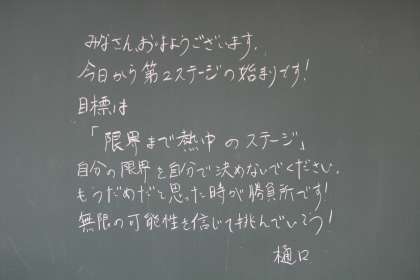 みなさん、おはようございます。
今日から第2ステージの始まりです!
目標は
「限界まで熱中のステージ」
自分の限界を自分で決めないでください。
もうだめだと思った時が勝負所です!
無限の可能性を信じて挑んでいこう!
樋口